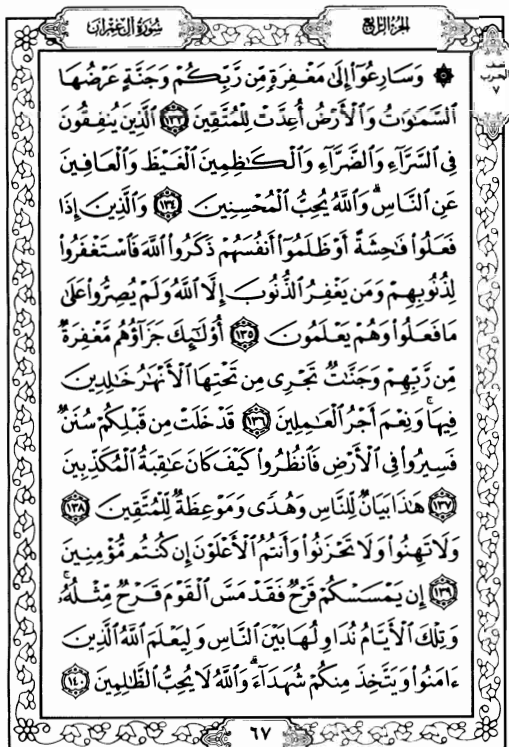 سُورَةُ آلِ عِمْرَان
الجُزْءُ الرَّابِعُ
نصف
الحزب
٧
۞ وَسَارِعُوٓا۟ إِلَىٰ مَغْفِرَةٍ مِّن رَّبِّكُمْ وَجَنَّةٍ عَرْضُهَا
ٱلسَّمَٰوَٰتُ وَٱلْأَرْضُ أُعِدَّتْ لِلْمُتَّقِينَ ١٣٣ ٱلَّذِينَ يُنفِقُونَ
فِى ٱلسَّرَّآءِ وَٱلضَّرَّآءِ وَٱلْكَٰظِمِينَ ٱلْغَيْظَ وَٱلْعَافِينَ
عَنِ ٱلنَّاسِ ۗ وَٱللَّهُ يُحِبُّ ٱلْمُحْسِنِينَ ١٣٤ وَٱلَّذِينَ إِذَا
فَعَلُوا۟ فَٰحِشَةً أَوْ ظَلَمُوٓا۟ أَنفُسَهُمْ ذَكَرُوا۟ ٱللَّهَ فَٱسْتَغْفَرُوا۟
لِذُنُوبِهِمْ وَمَن يَغْفِرُ ٱلذُّنُوبَ إِلَّا ٱللَّهُ وَلَمْ يُصِرُّوا۟ عَلَىٰ
مَا فَعَلُوا۟ وَهُمْ يَعْلَمُونَ ١٣٥ أُو۟لَٰٓئِكَ جَزَآؤُهُم مَّغْفِرَةٌ
مِّن رَّبِّهِمْ وَجَنَّٰتٌ تَجْرِى مِن تَحْتِهَا ٱلْأَنْهَٰرُ خَٰلِدِينَ
فِيهَا ۚ وَنِعْمَ أَجْرُ ٱلْعَٰمِلِينَ ١٣٦ قَدْ خَلَتْ مِن قَبْلِكُمْ سُنَنٌ
فَسِيرُوا۟ فِى ٱلْأَرْضِ فَٱنظُرُوا۟ كَيْفَ كَانَ عَٰقِبَةُ ٱلْمُكَذِّبِينَ
١٣٧ هَٰذَا بَيَانٌ لِّلنَّاسِ وَهُدًى وَمَوْعِظَةٌ لِّلْمُتَّقِينَ ١٣٨
وَلَا تَهِنُوا۟ وَلَا تَحْزَنُوا۟ وَأَنتُمُ ٱلْأَعْلَوْنَ إِن كُنتُم مُّؤْمِنِينَ
١٣٩ إِن يَمْسَسْكُمْ قَرْحٌ فَقَدْ مَسَّ ٱلْقَوْمَ قَرْحٌ مِّثْلُهُۥ ۚ
وَتِلْكَ ٱلْأَيَّامُ نُدَاوِلُهَا بَيْنَ ٱلنَّاسِ وَلِيَعْلَمَ ٱللَّهُ ٱلَّذِينَ
ءَامَنُوا۟ وَيَتَّخِذَ مِنكُمْ شُهَدَآءَ ۗ وَٱللَّهُ لَا يُحِبُّ ٱلظَّٰلِمِينَ ١٤٠
٦٧